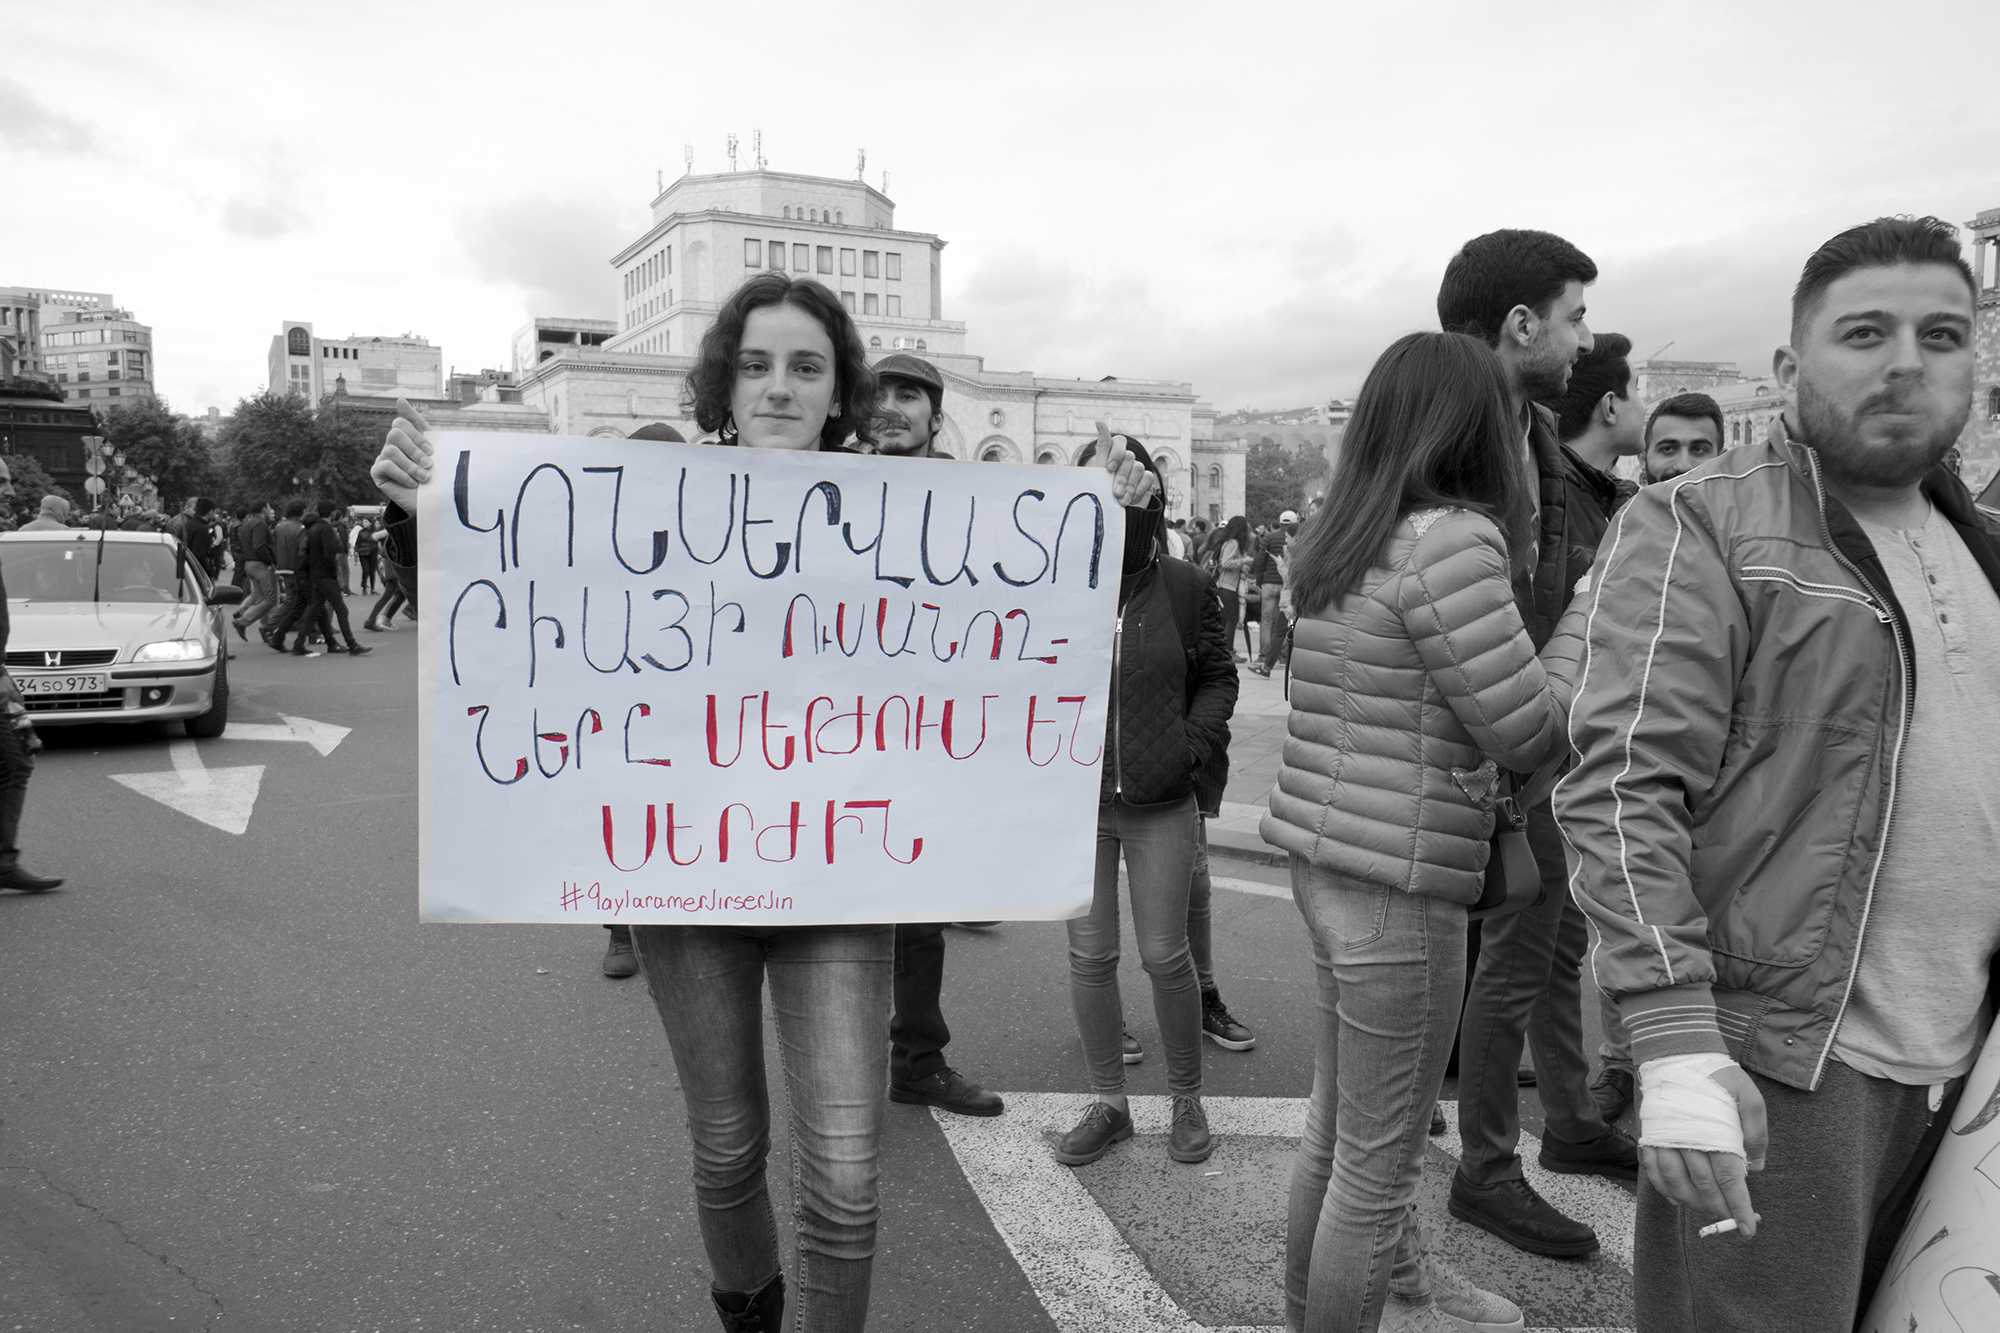 ԿՈՆՍԵՐՎԱՏՈ
ՐԻԱՅԻ ՈՒՍԱՆՈՂ-
ՆԵՐԸ ՄԵՐԺՈՒՄ ԵՆ
ՍԵՐԺԻՆ
#qaylaramerJirserJin
34 SO 973